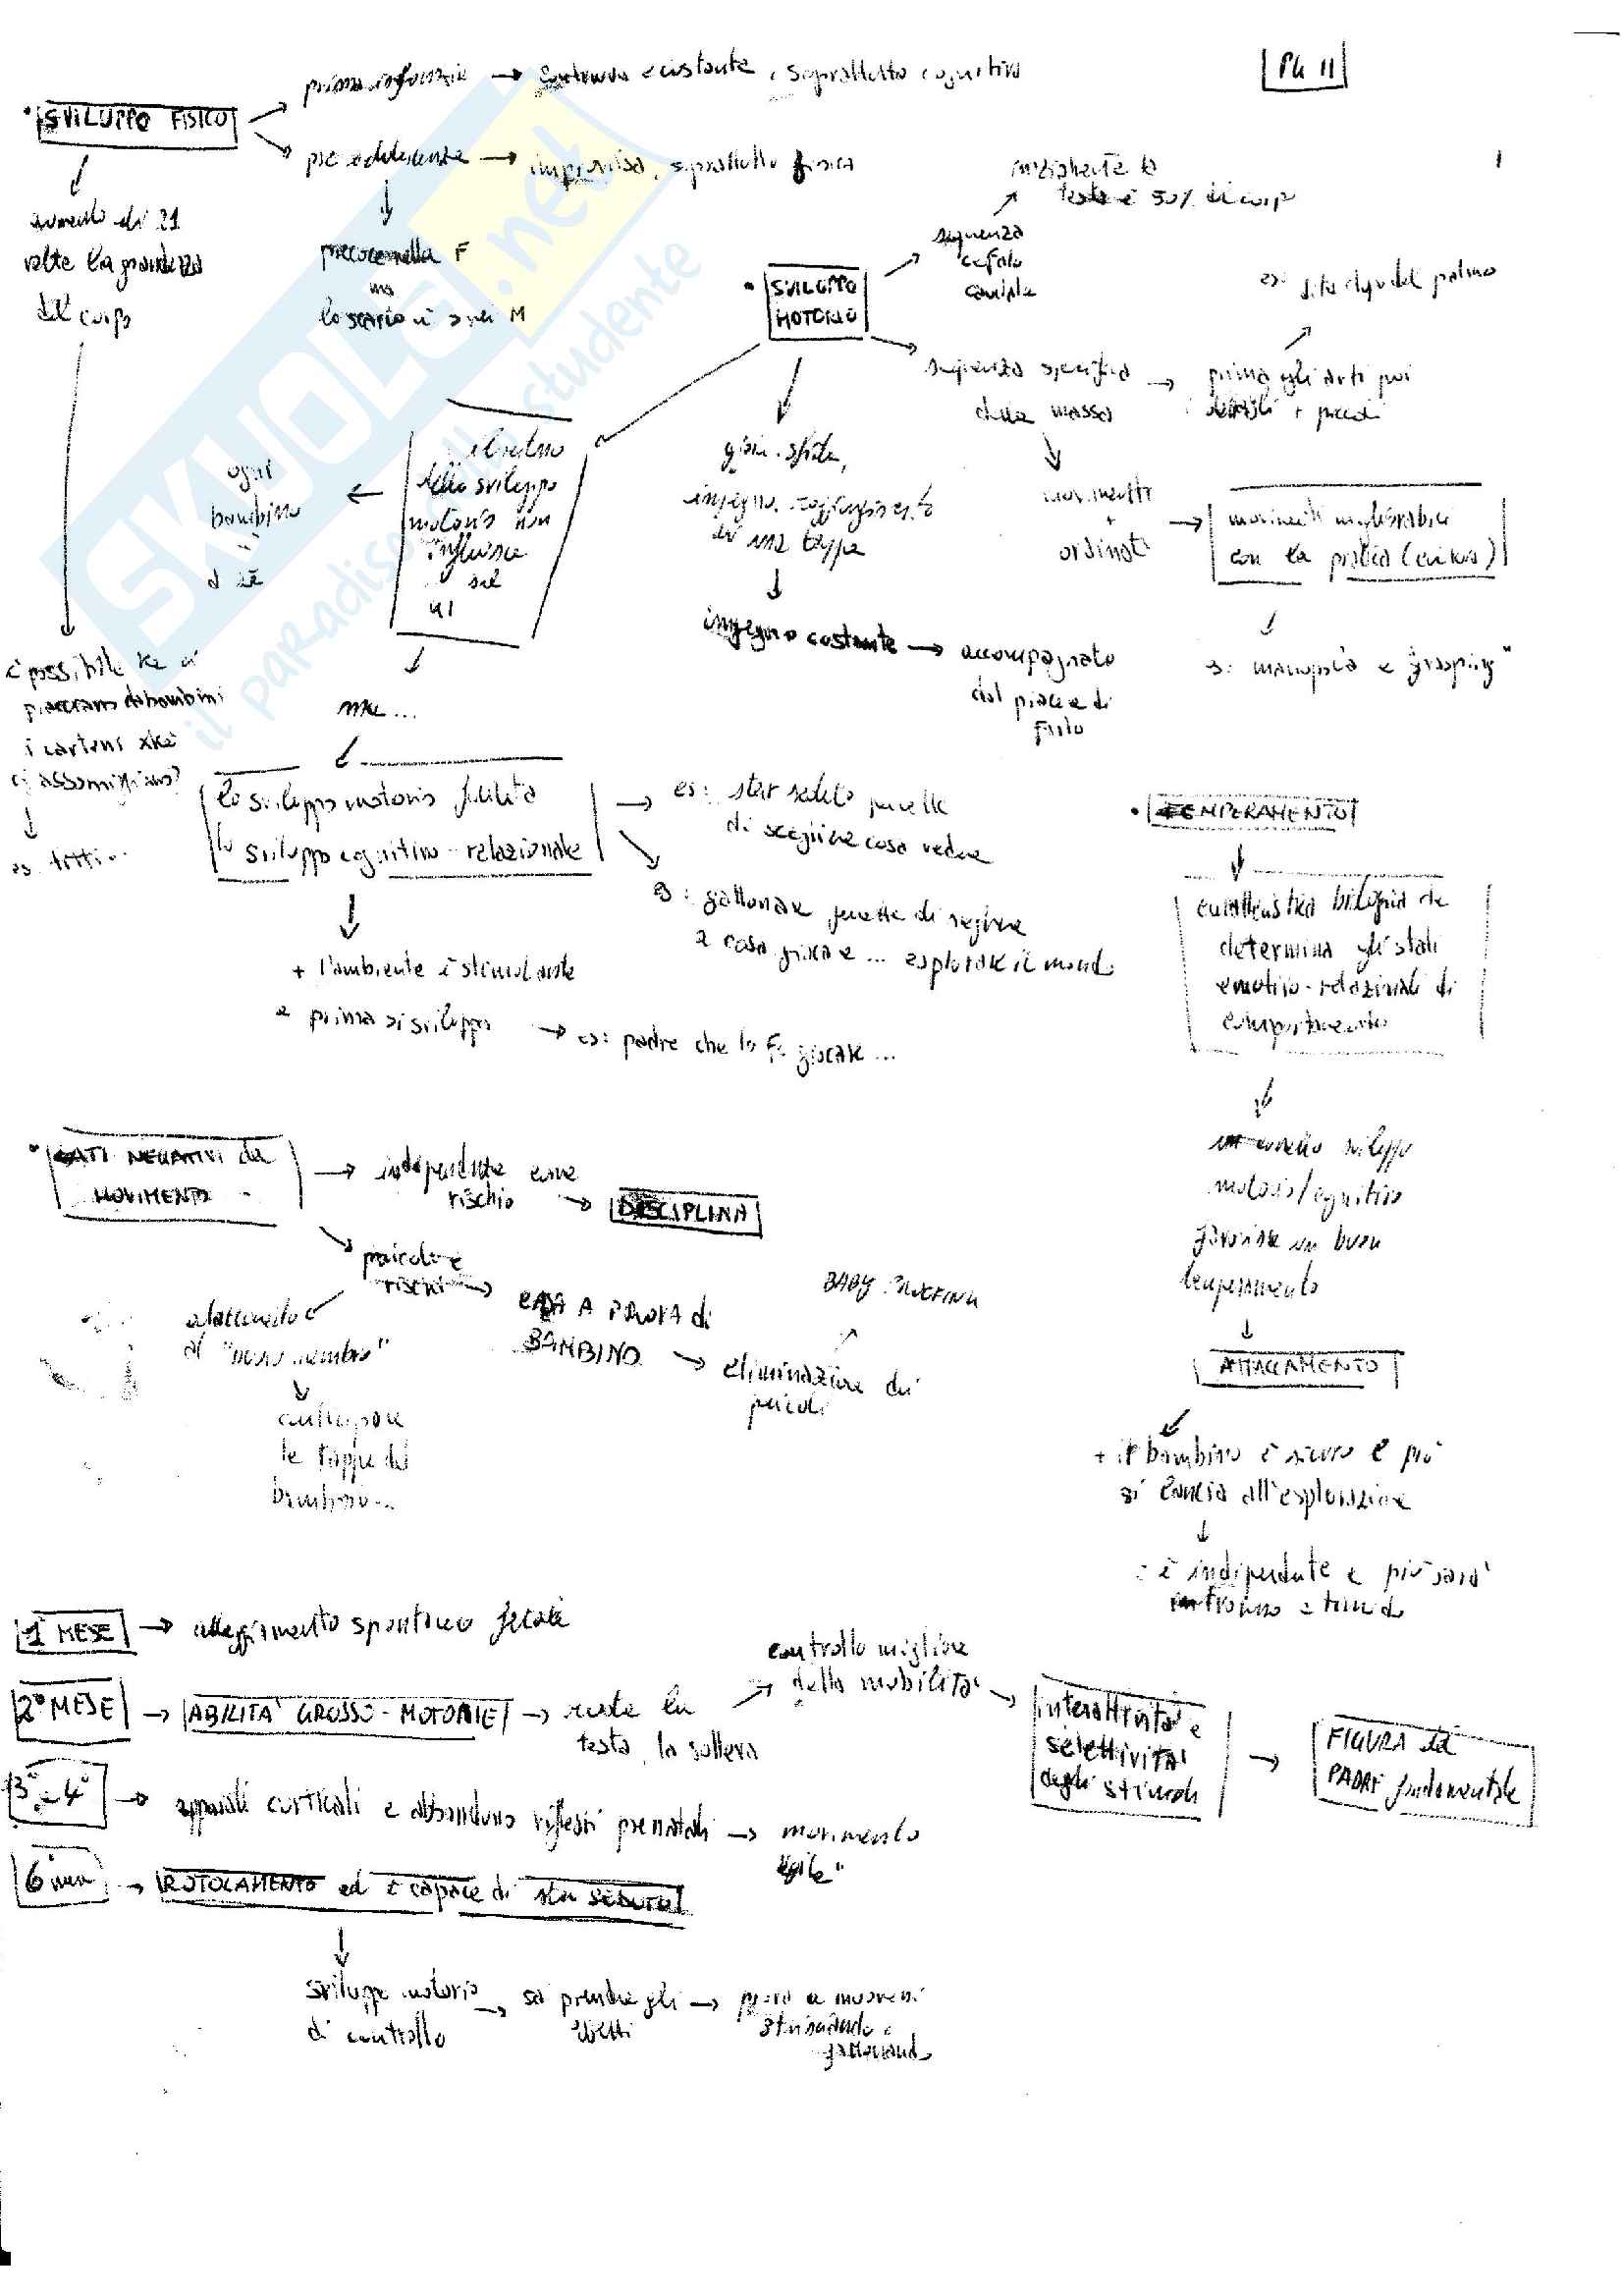 PG 11
• SVILUPPO FISICO
prima infanzia → costante, soprattutto cognitiva
→ improvvisa, soprattutto fisica
aumento di 21
volte la grandezza
del corpo
precoce nella F
ma
lo scatto è > nei M
è possibile ke ci
piacciano da bambini
i cartoni xké
ci assomigliano?
es. titti...
• SVILUPPO
MOTORIO
sequenza
cefalo
caudale
inizialmente la
testa è 50% di corp
sequenza specifica
della massa
prima gli arti poi
dettagli + piccoli
es: dita dopo del palmo
movimenti
+
ordinati
movimenti migliorabili
con la pratica
es: manopola e grasping"
gioia, sfida,
impegno, raggiungimento
di una tappa
impegno costante → accompagnato
dal piacere di
farlo
il ritmo
dello sviluppo
motorio non
influisce
sul
QI
ogni
bambino
è
a sé
ma...
lo sviluppo motorio facilita
lo sviluppo cognitivo-relazionale
es: star seduto permette
di scegliere cosa vedere
es: gattonare permette di scegliere
a cosa giocare ... esplorare il mondo
+ l'ambiente è stimolante
e prima si sviluppa → es: padre che lo fa giocare ...
• TEMPERAMENTO
caratteristica biologica che
determina gli stati
emotivo-relazionali di
comportamento
un corretto sviluppo
motorio/cognitivo
favorisce un buon
temperamento
ATTACCAMENTO
+ il bambino è sicuro e più
si lancia all'esplorazione
è indipendente e più sarà
e timido
• LATI NEGATIVI da
MOVIMENTO
→ indipendenza come
rischio → DISCIPLINA
pericoli e
rischi
adattamento
al "nuovo membro"
le tappe del
bambino...
CASA A PROVA di
BAMBINO → eliminazione dei
pericoli
BABY PROOFING
1° MESE → atteggiamento spontaneo fetale
2° MESE → ABILITÀ GROSSO-MOTORIE → ruota la
testa, la solleva
controllo migliore
della mobilità
interattività e
selettività
degli stimoli
FIGURA del
PADRE fondamentale
3° - 4° → apparati corticali e abbandono riflessi prenatali → movimento
"agile"
6° mese → ROTOLAMENTO ed è capace di star SEDUTO
sviluppo motorio
di controllo
→ sa prendere gli
oggetti
→ prova a muoversi
strisciando e
gattonando
SKUOLA.net
il paradiso dello studente